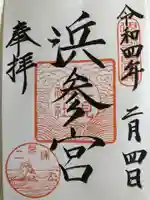 令和四年 二月四日
浜参宮
奉拝